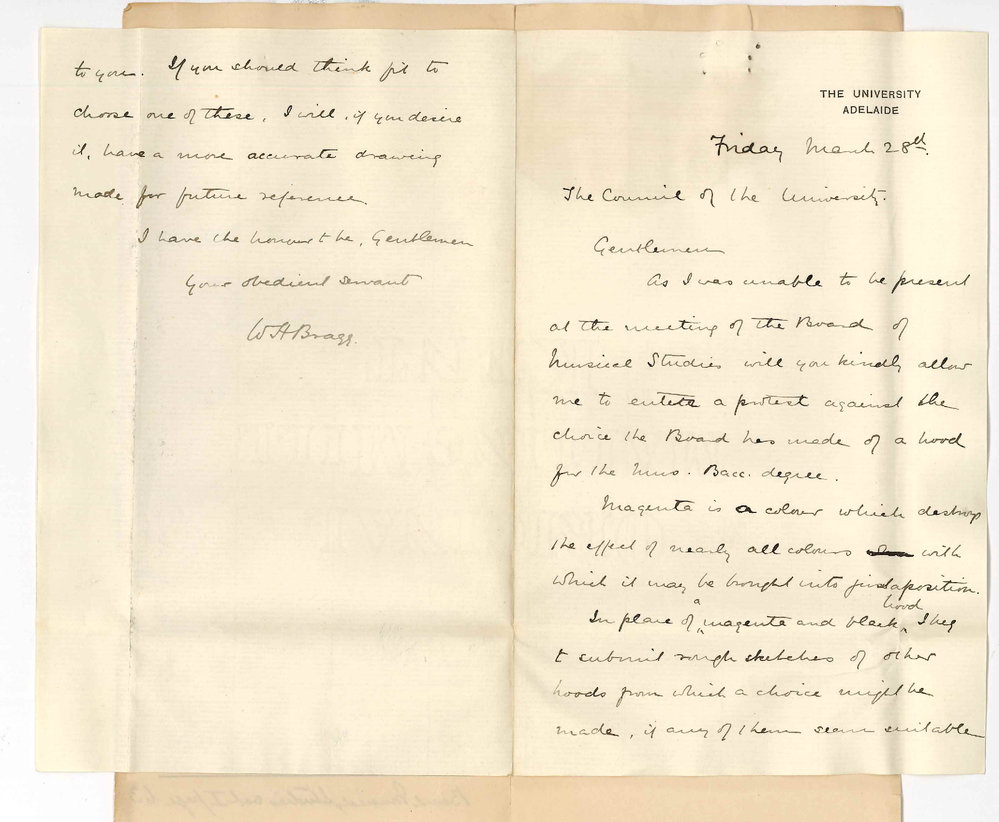 THE UNIVERSITY
ADELAIDE
Friday March 28th.
The Council of the University.
Gentlemen
As I was unable to be present
at the meeting of the Board of
Musical Studies will you kindly allow
me to enter a protest against the
choice the Board has made of a hood
for the Mus. Bacc. degree.
Magenta is a colour which destroys
the effect of nearly all colours with
which it may be brought into juxtaposition.
In place of a magenta and black hood, I beg
to submit rough sketches of other
hoods from which a choice might be
made, if any of them seem suitable
to you. If you should think fit to
choose one of these, I will, if you desire
it, have a more accurate drawing
made for future reference
I have the honour to be, Gentlemen
Your obedient servant
WHBragg.